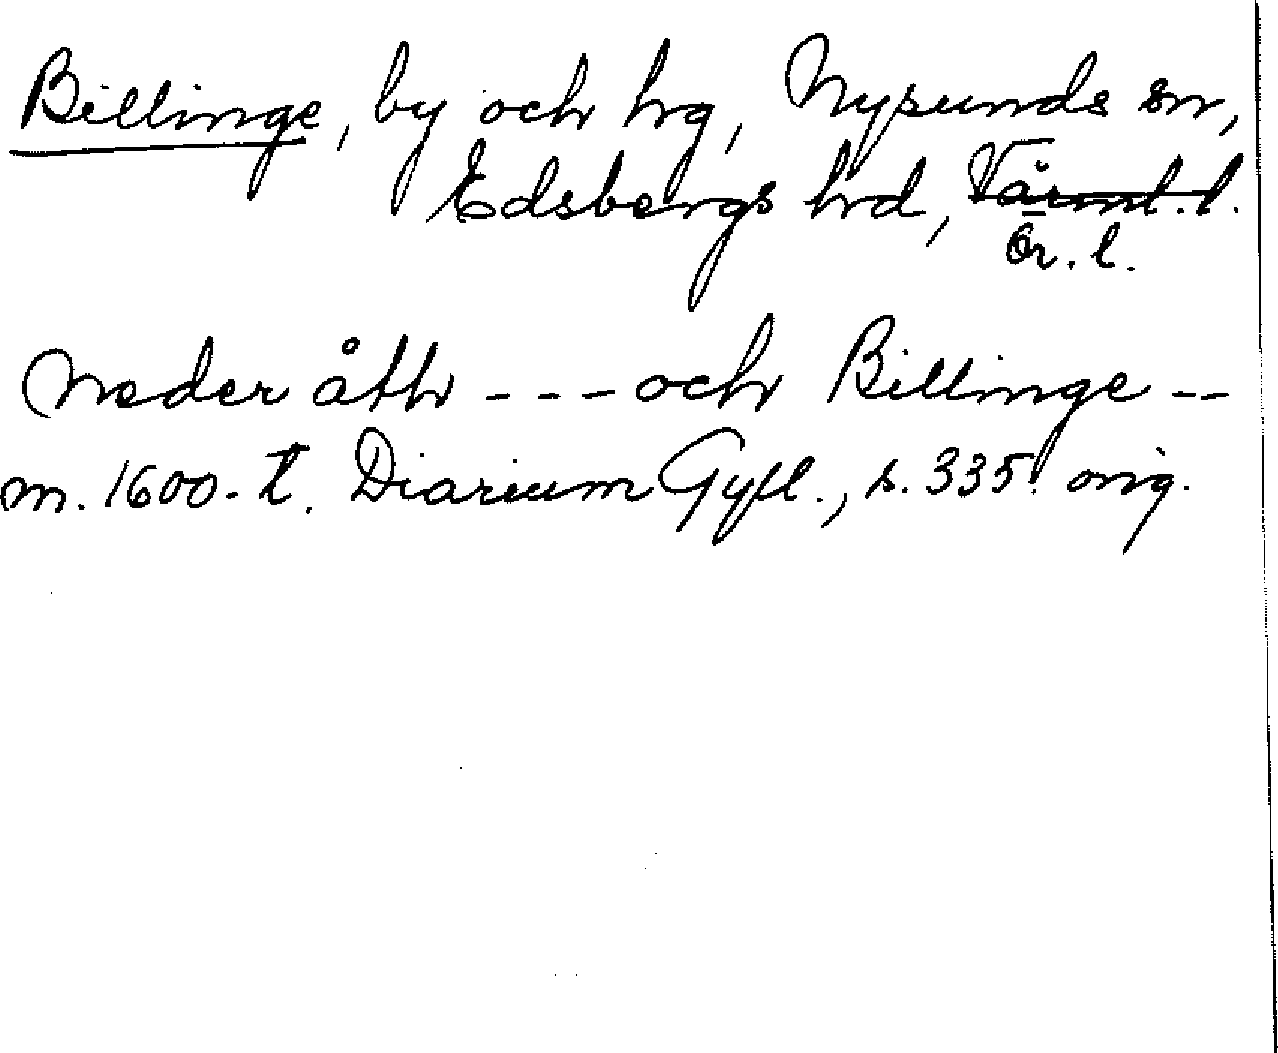 Billinge, by och hrg, Nysunds sn,
Edsbergs hrd, Värml. l.
Ör. l.
Neder åth --- och Billinge --
m. 1600-t. Diarium Gyll., s. 335. orig.